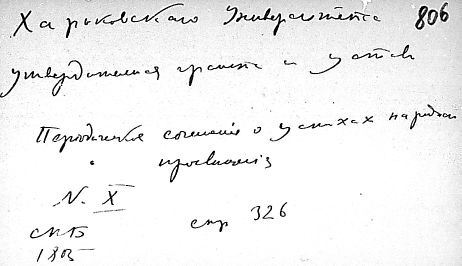 Харьковскаго Университета 806
утвердительная грамота и устав
Периодическия сочинения о успехах народнаго
просвещения
N. X
стр 326
СПБ
1805